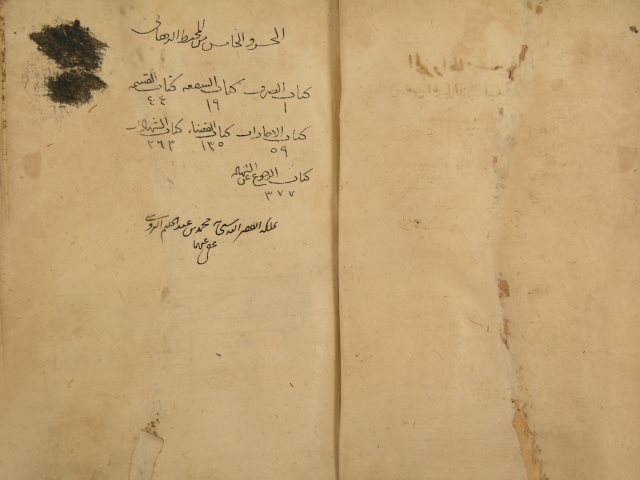 الجزو الخامس من المحيط البرهاني
كتاب الصرف كتاب الشفعة كتاب القسمة
١ ١٩ ٤٤
كتاب الاجارات كتاب القضاء كتاب الشهادات
٥٩ ١٣٥ ٢٦٣
كتاب الرجوع عن الشهادة
٣٧٧
ملكه الفقير محمد بن عبد الحليم
عفى عنهما